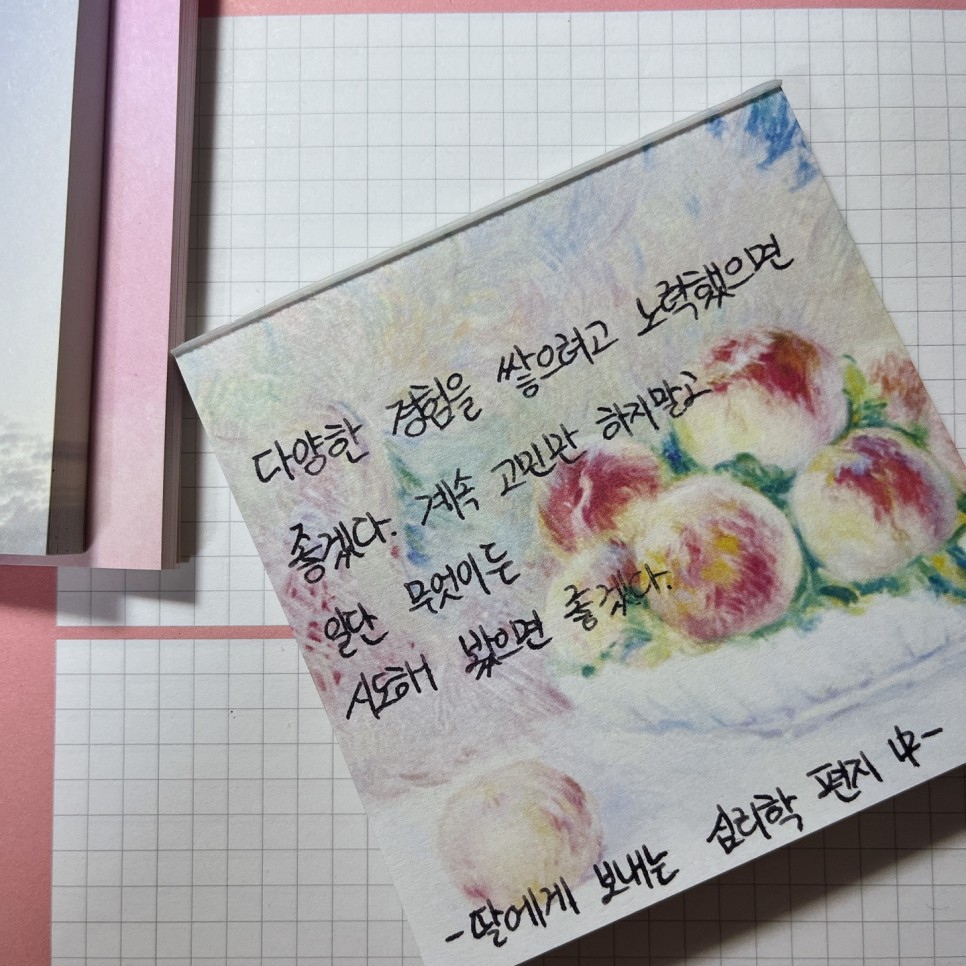 다양한 경험을 쌓으려고 노력했으면
좋겠다. 계속 고민만 하지말고
일단 무엇이든
시도해 봤으면 좋겠다.
-딸에게 보내는 심리학 편지 中-